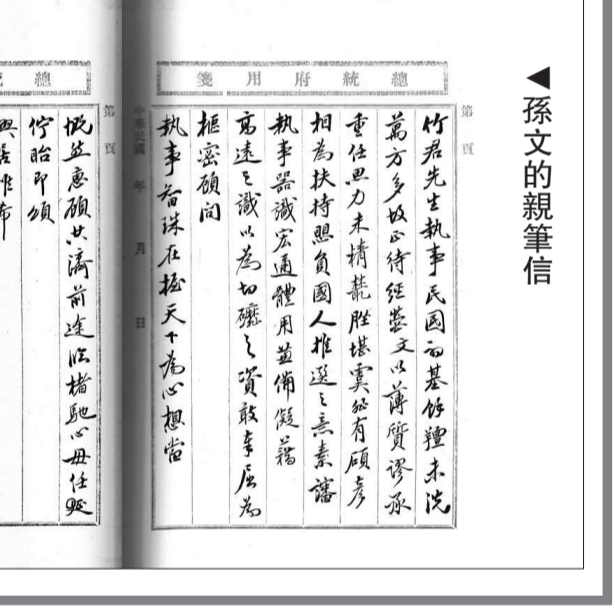 ◀孫文的親筆信
總統府用箋
第 頁
竹君先生執事民國初基餘羶未洗
萬方多故正待經營文以薄質謬承
重任思力未精蓖勝堪虞茲有碩彥
相為扶持思負國人推選之意素諗
執事器識宏通體用兼備儗藉
高遠之識以為切礪之資敢奉屈為
樞密顧問
執事智珠在握天下為心想當
中華民國 年 月 日
總
第 頁
慨然惠顧共濟前途臨楮馳心毋任延
佇昐即頌